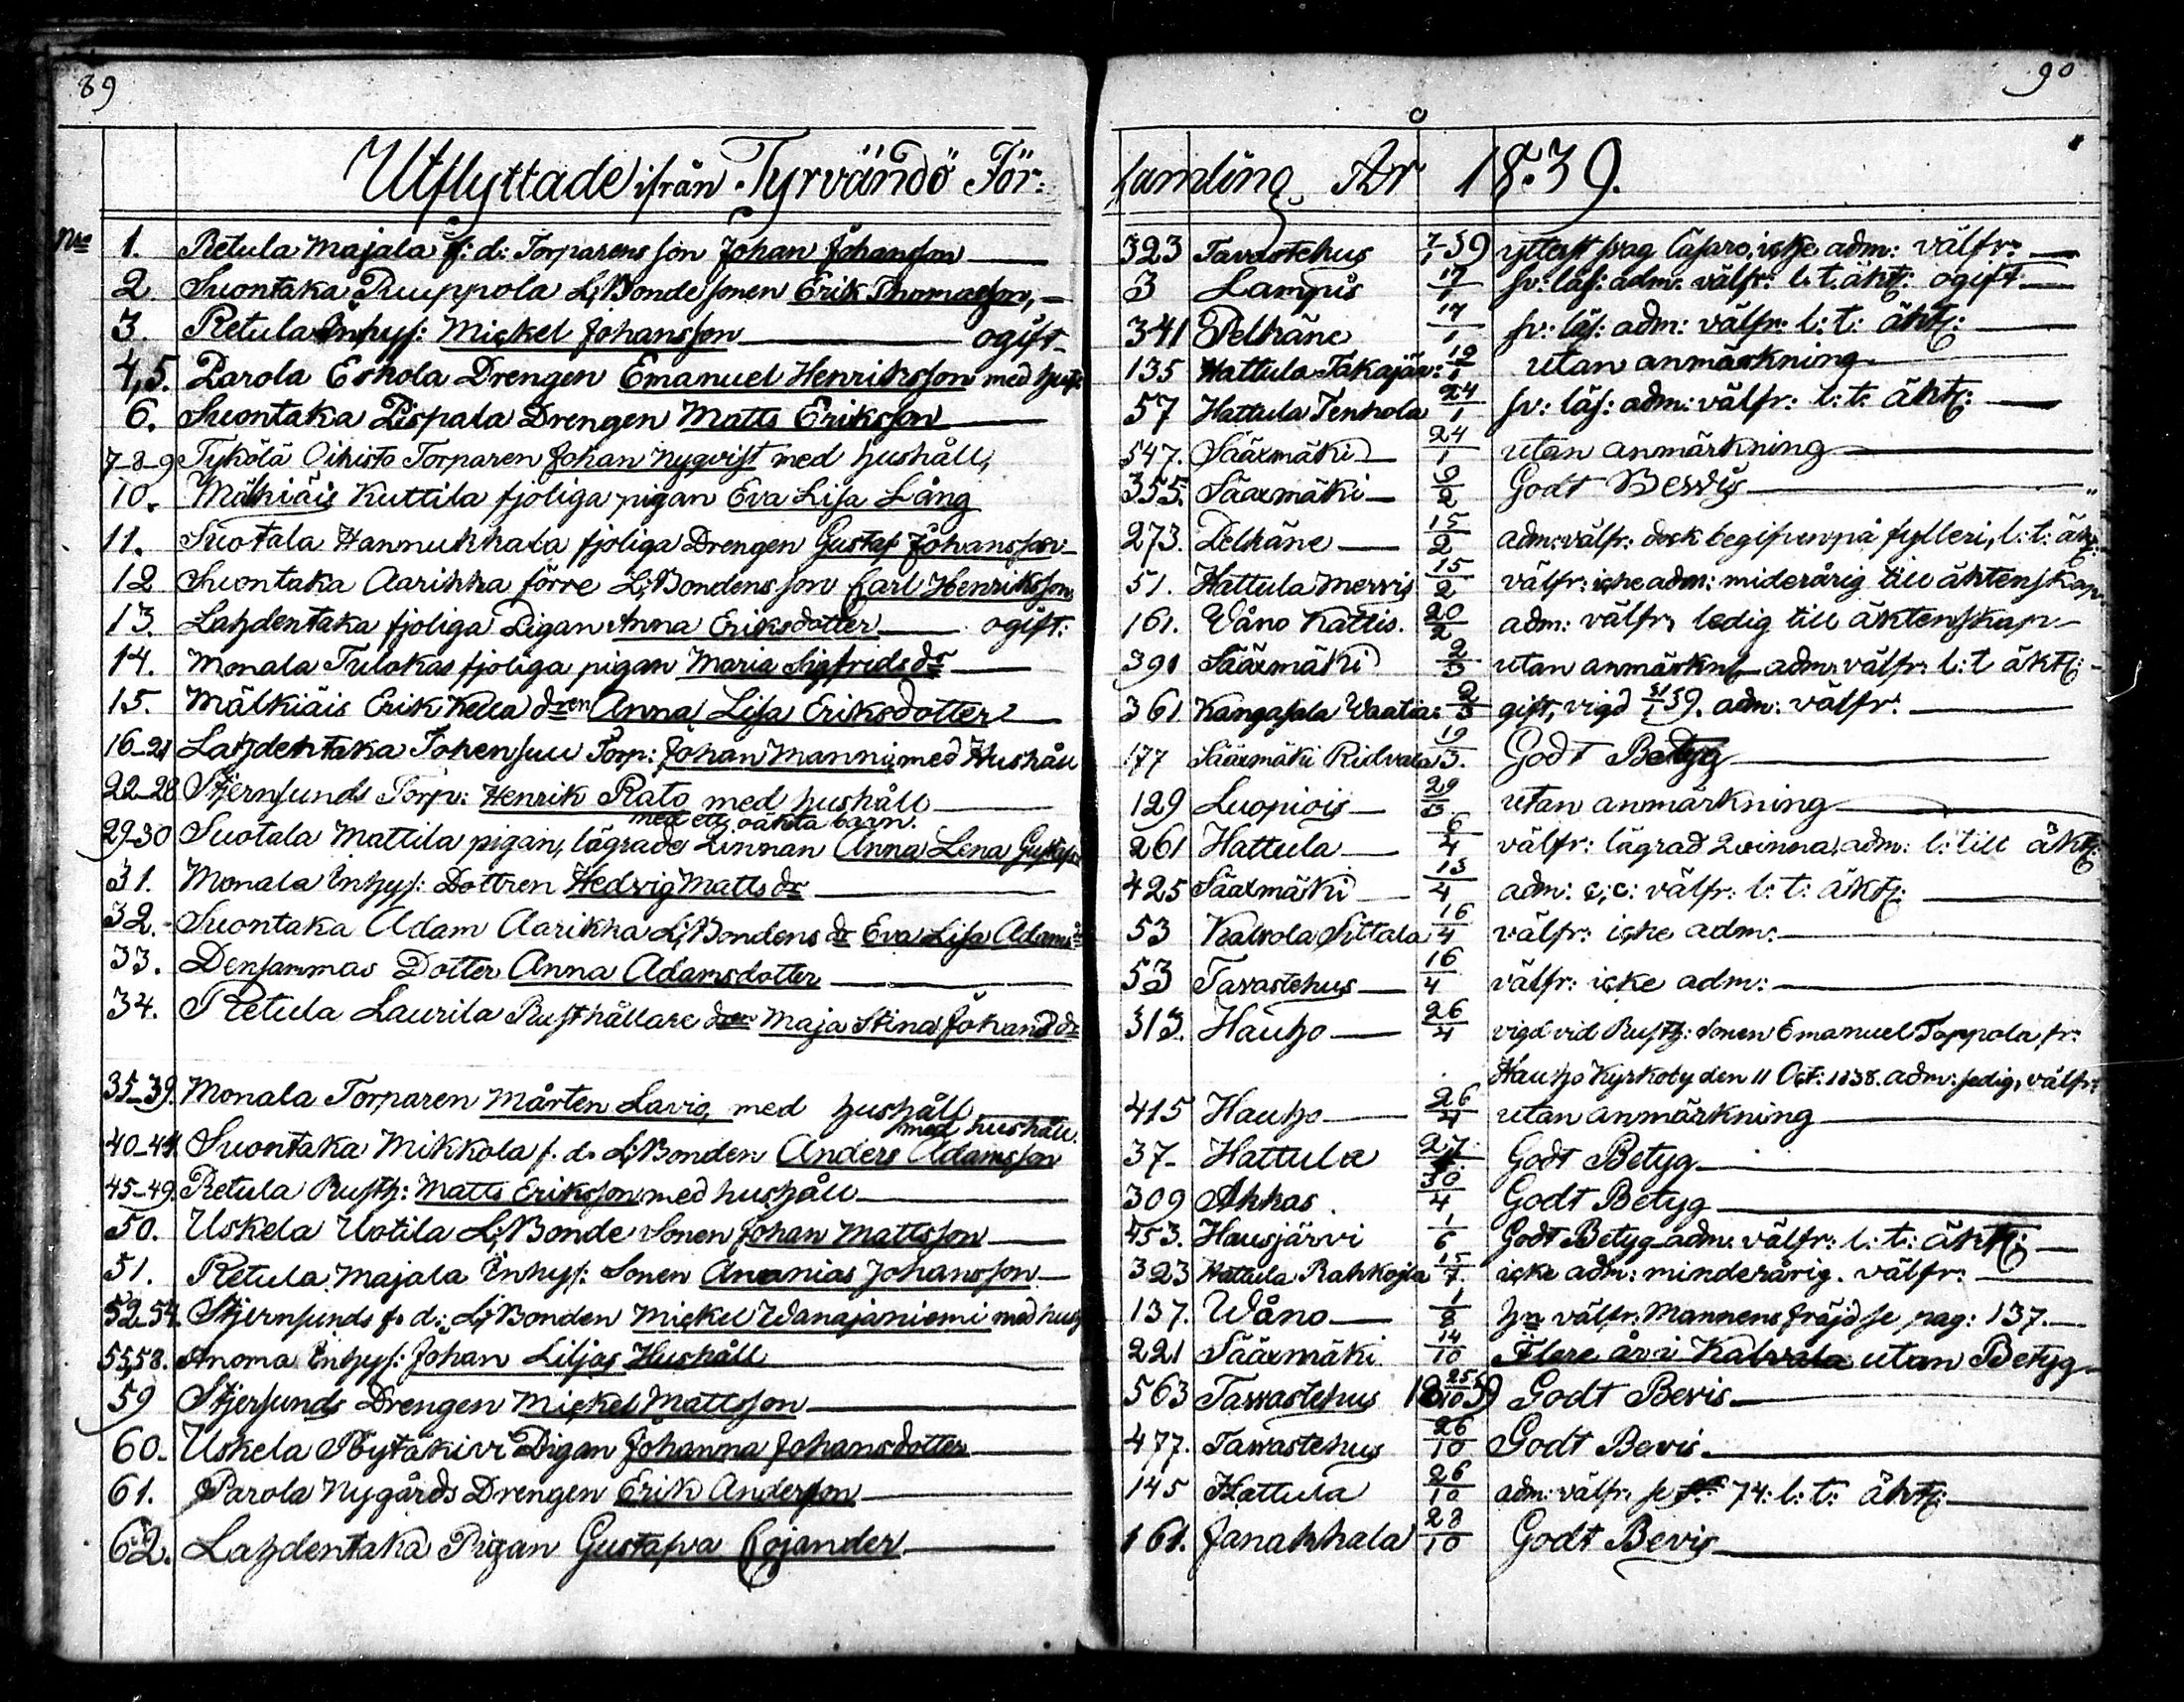 89
Utflyttade ifrån Tyrvändö För:
Nro 1. Retula Majala f: d: Torparens son Johan Johansson
2 Suontaka Puuppola L:Bonde sonen Erik Thomasson,
3. Retula Inhys: Mickel Johansson ogift
4,5. Parola Eskola Drengen Emanuel Henriksson med hust:
6. Suontaka Pispala Drengen Matts Eriksson
7-8-9 Tykölä Oihisto Torparen Johan Nyqvist med hushåll,
10. Mälkiäis Kuttila fjoliga pigan Eva Lisa Lång
11. Suotala Hannukkala fjoliga Drengen Gustaf Johansson
12 Suontaka Aarikka förre L:Bondens son Carl Henriksson
13. Lahdentaka fjoliga Pigan Anna Eriksdotter ogift:
14. Monala Tulokas fjoliga pigan Maria Sigfrids dr
15. Mälkiäis Erik Kella dren Anna Lisa Eriksdotter
16-21 Lahdentaka Johensuu Torp: Johan Manni med Hushåll
22-28 Stjernsunds Torp: Henrik Rato med hushåll
med ett oäkta barn.
29-30 Suotala Mattila pigan, lägrade Qvinnan Anna Lena Gustafsd
31. Monala Inhys: Dottren Hedvig Matts dr
32. Suontaka Adam Aarikka L:Bondens dr Eva Lisa Adamsdr
33. Densammas Dotter Anna Adamsdotter
34. Retula Laurila Rusthållare dren Maja Stina Johans dr
35-39. Monala Torparen Mårten Lavio, med hushåll
med hushåll.
40-44. Suontaka Mikkola f. d. L:Bonden Anders Adamsson
45-49. Retula Rusth: Matts Eriksson med hushåll
50. Uskela Uotila L:Bonde Sonen Johan Mattsson
51. Retula Majala Inhys: Sonen Ananias Johansson
52-54 Stjernsunds f. d: L:Bonden Mickel Wanajaniemi med hush
55,58. Anoma Inhys: Johan Liljas Hushåll
59 Stjersunds Drengen Mickel Mattsson
60. Uskela Pöytäkivi Pigan Johanna Johansdotter
61. Parola Nygårds Drengen Erik Andersson
62. Lahdentaka Pigan Gustafva Cojander
90
samling År 1839.
323 Tavastehus 7/1 39 ytterst svag läsare, icke adm: välfr:
3 Lampis 17/1 sv: läs: adm: välfr: l: t. äkt: ogift
341 Pelkäne 17/1 sv: läs: adm: välfr: l: t: äkt:
135 Hattula Takajär: 19/1 utan anmärkning
57 Hattula Tenhola 24/1 sv: läs: adm: välfr: l: t: äkt:
547. Sääxmäki 24/1 utan anmärkning
355. Sääxmäki 9/2 Godt Bevis
273. Pelkäne 15/2 adm: välfr: dock begifven på fylleri, l: t: äkt:
51. Hattula Mervis 15/2 välfr: icke adm: minderårig till äktenskap
161. Wåno Kattis. 20/2 adm: välfr, ledig till äktenskap
391 Sääxmäki 2/3 utan anmärkng adm. välfr: l: t äkt:
361 Kangasala Waatia: 2/3 gift, vigd 31/1 39. adm: välfr:
177 Sääxmäki Ridvala 19/3. Godt Betyg
129 Luopiois 29/3. utan anmärkning
261 Hattula 6/4 välfr: lägrad Qvinna, adm: l: till äkt:
425 Sääxmäki 13/4 adm: c, c: välfr: l: t: äkt:
53 Kalvola Sittala 16/4 välfr: icke adm:
53 Tavastehus 16/4 välfr: icke adm:
313. Hauho 26/4 vigd vid Rusth: Sonen Emanuel Toppola fr:
Hauho Kyrkoby den 11 Oct: 1838. adm: sedig, välfr:
415 Hauho 26/4 utan anmärkning
37 Hattula 27/4. Godt Betyg
309 Akkas. 30/4 Godt Betyg
453. Hausjärvi 1/6 Godt Betyg adm: välfr: l: t: äkt:
323 Hattula Rahkoila 15/7. icke adm: minderårig. välfr:
137. Wåno 1/8 hn välfr: Mannens fräjd se pag: 137.
221 Sääxmäki 14/10 Flere år i Kalvola utan Betyg
563 Tavastehus 18 25/10 39 Godt Bevis
477. Tavastehus 26/10 Godt Bevis.
145 Hattula 26/10 adm: välfr: se 74: l: t: äkt:
161. Janakkala 28/10 Godt Bevis